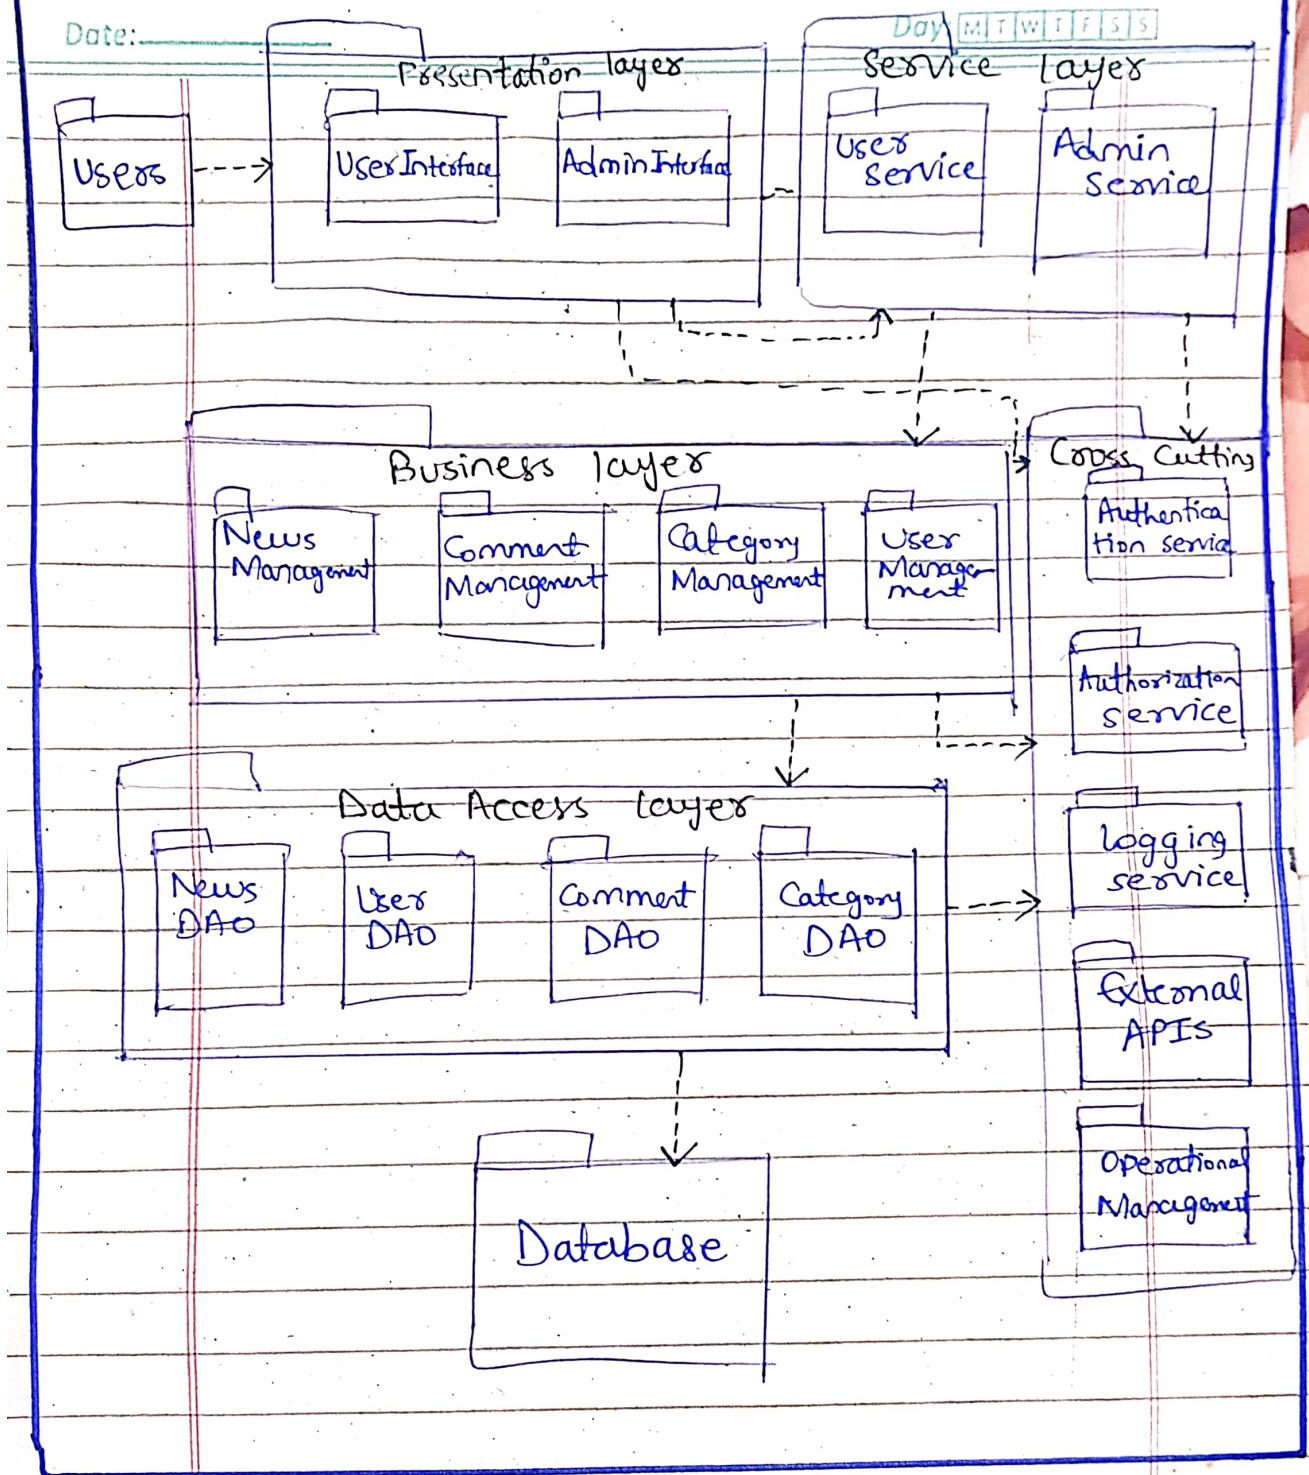 Date:
Day M T W T F S S
Presentation layer
Service Layer
Users
User Interface
Admin Interface
User
Service
Admin
Service
Business layer
News
Management
Comment
Management
Category
Management
User
Manage-
ment
Cross Cutting
Authentica
tion servic
Authorization
service
Logging
service
External
APIs
Operational
Management
Data Access layer
News
DAO
User
DAO
Comment
DAO
Category
DAO
Database